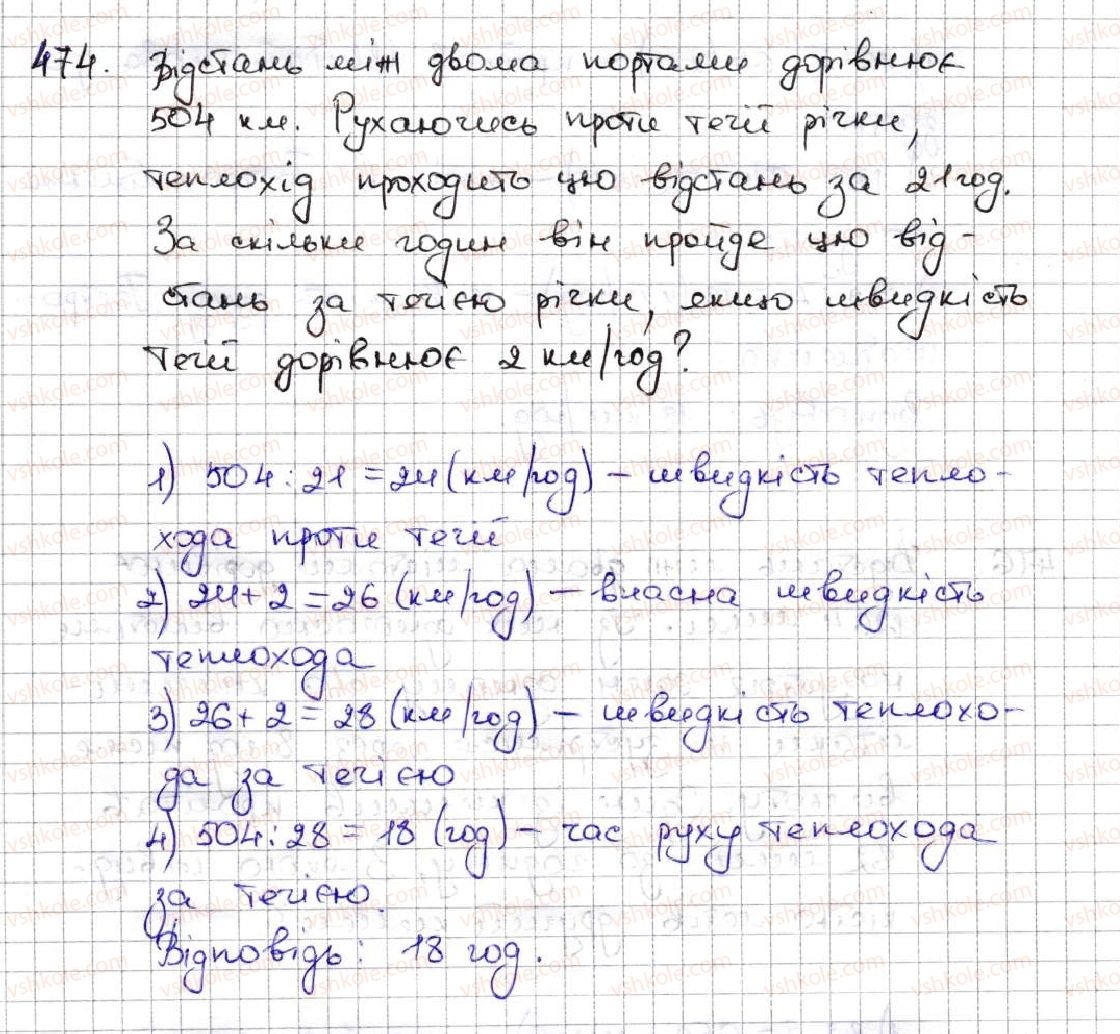 474. Відстань між двома портами дорівнює
504 км. Рухаючись проти течії річки,
теплохід проходить цю відстань за 21 год.
За скільки годин він пройде цю від-
стань за течією річки, якщо швидкість
течії дорівнює 2 км/год?
1) 504 : 21 = 24 (км/год) – швидкість тепло-
хода проти течії
2) 24 + 2 = 26 (км/год) – власна швидкість
теплохода
3) 26 + 2 = 28 (км/год) – швидкість теплохо-
да за течією
4) 504 : 28 = 18 (год) – час руху теплохода
за течією.
Відповідь: 18 год.